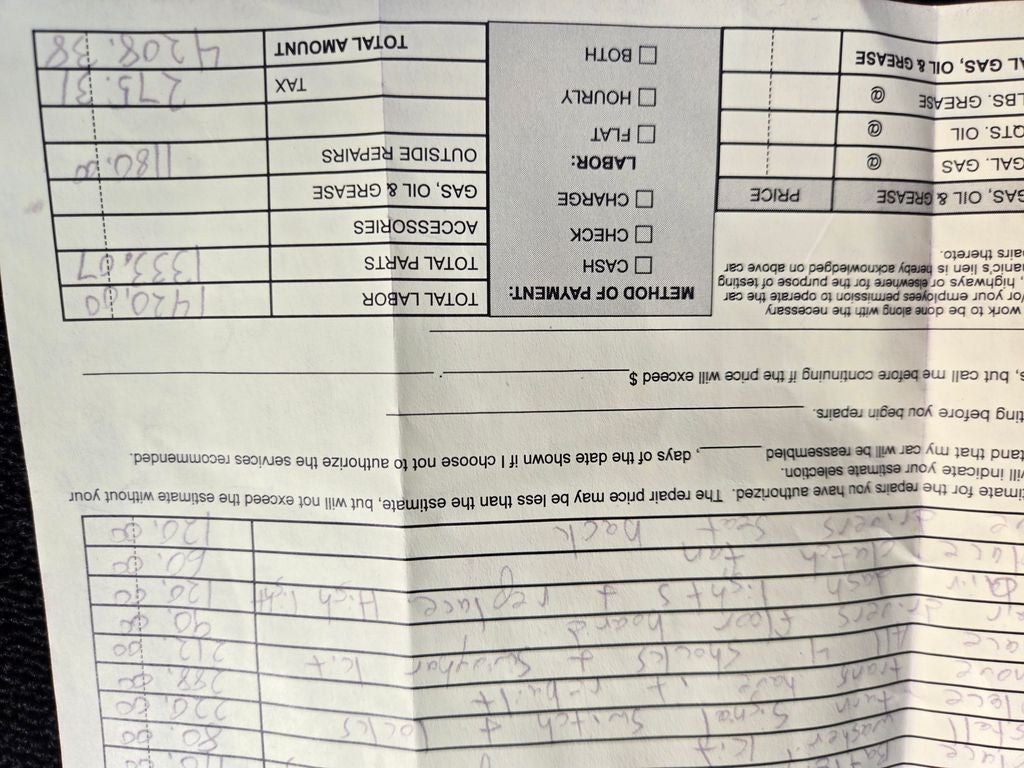 washer kit 80.00
turn signal switch & locks 220.00
move trans have it rebuilt 288.00
lace All 4 shocks & swaybar kit 212.00
er drivers floor board 90.00
pair dash lights & replace High light 120.00
lace clutch fan 60.00
drivers seat back 120.00
timate for the repairs you have authorized. The repair price may be less than the estimate, but will not exceed the estimate without your
ill indicate your estimate selection.
tand that my car will be reassembled ______, days of the date shown if I choose not to authorize the services recommended.
ting before you begin repairs.
s, but call me before continuing if the price will exceed $
work to be done along with the necessary
/or your employees permission to operate the car
, highways or elsewhere for the purpose of testing
anic's lien is hereby acknowledged on above car
airs thereto.
GAS, OIL & GREASE PRICE
GAL. GAS @
QTS. OIL @
LBS. GREASE @
AL GAS, OIL & GREASE
METHOD OF PAYMENT:
CASH
CHECK
CHARGE
LABOR:
FLAT
HOURLY
BOTH
TOTAL LABOR 1420.00
TOTAL PARTS 1333.07
ACCESSORIES
GAS, OIL & GREASE
OUTSIDE REPAIRS 1180.00
TAX 275.31
TOTAL AMOUNT 4208.38